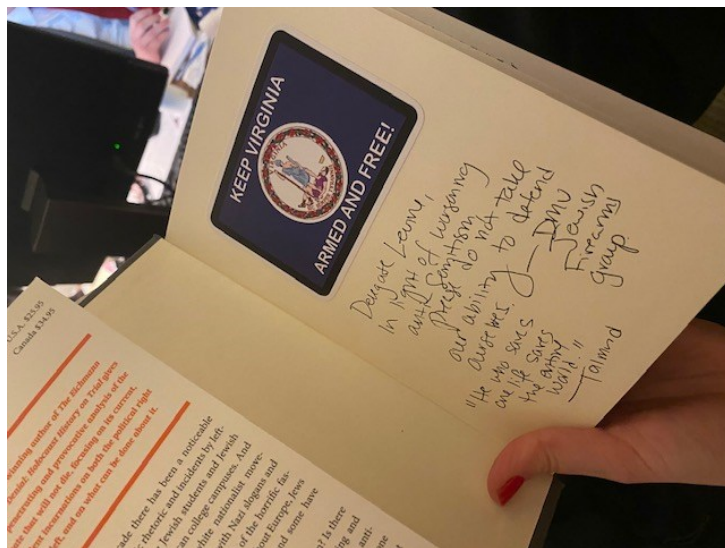 KEEP VIRGINIA
ARMED AND FREE!
Delegate Levine,
In light of worsening
anti Semitism
Please do not take
our ability to defend
ourselves.
— DMV
Jewish
Firearms
group
"He who saves
one life saves
the entire
world."
— Talmud
U.S.A. $25.95
Canada $34.95
winning author of The Eichmann
Denial: Holocaust History on Trial gives
penetrating and provocative analysis of the
ate that will not die, focusing on its current,
ent incarnations on both the political right
left, and on what can be done about it.
ade there has been a noticeable
rhetoric and incidents by left-
Jewish students and Jewish
an college campuses. And
white nationalist move-
with Nazi slogans and
of the horrific fas-
out Europe, Jews
nd some have
n? Is there
ing and
anti-
one